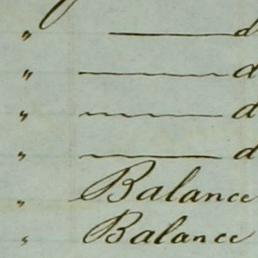 " —— d
" —— d
" —— d
" —— d
" Balance
" Balance